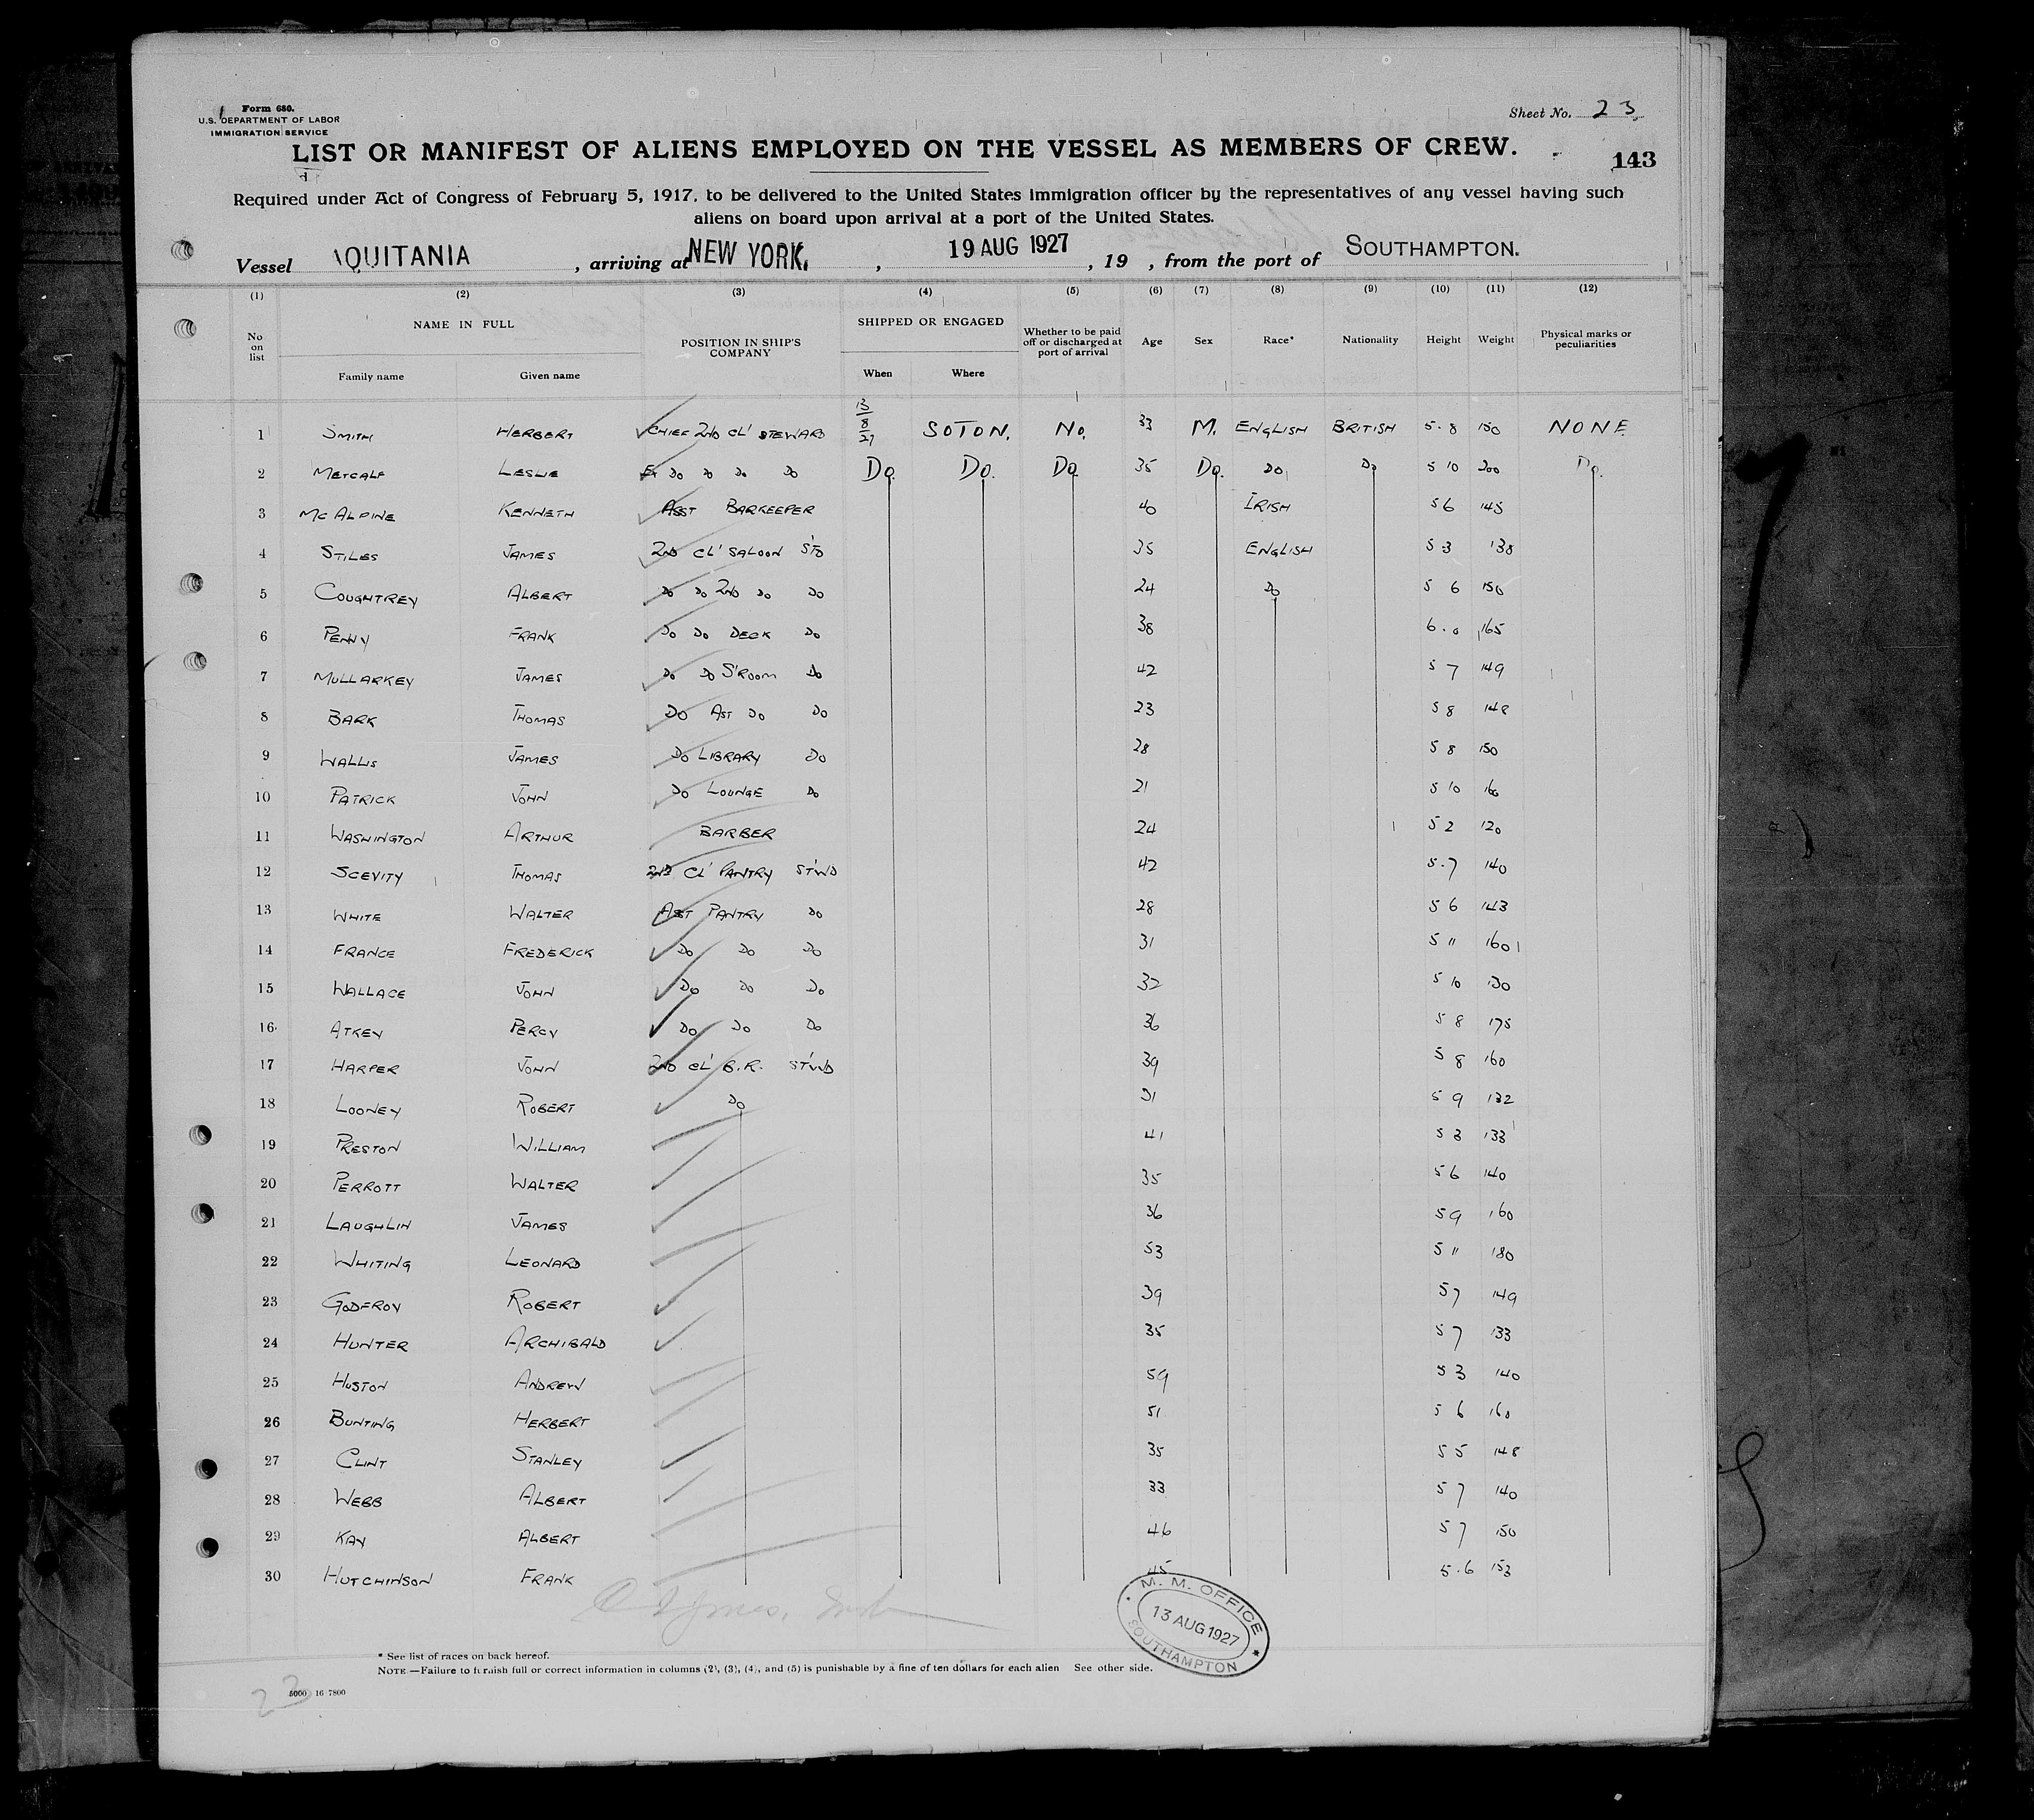 Form 680.
U.S. DEPARTMENT OF LABOR
IMMIGRATION SERVICE
Sheet No. 23
LIST OR MANIFEST OF ALIENS EMPLOYED ON THE VESSEL AS MEMBERS OF CREW.
143
Required under Act of Congress of February 5, 1917, to be delivered to the United States immigration officer by the representatives of any vessel having such
aliens on board upon arrival at a port of the United States.
Vessel AQUITANIA, arriving at NEW YORK, , 19 AUG 1927, 19 , from the port of SOUTHAMPTON.
(1) (2) (3) (4) (5) (6) (7) (8) (9) (10) (11) (12)
No on list NAME IN FULL POSITION IN SHIP'S COMPANY SHIPPED OR ENGAGED Whether to be paid off or discharged at port of arrival Age Sex Race* Nationality Height Weight Physical marks or peculiarities
Family name Given name When Where
1 SMITH HERBERT CHIEF 2ND CL' STEWARD 13/8/27 SOTON. No. 33 M. ENGLISH BRITISH 5.8 150 NONE
2 METCALF LESLIE Ex Do Do Do Do Do. Do. Do 35 Do. Do Do 5 10 200 Do.
3 McALPINE KENNETH ASST BARKEEPER 40 IRISH 5 6 145
4 STILES JAMES 2ND CL' SALOON S'TD 35 ENGLISH 5 3 138
5 COUGHTREY ALBERT Do Do 2ND Do Do 24 Do 5 6 150
6 PENNY FRANK Do Do DECK Do 38 6.0 165
7 MULLARKEY JAMES Do Do S'ROOM Do 42 5 7 149
8 BARK THOMAS Do AST Do Do 23 5 8 148
9 WALLIS JAMES Do LIBRARY Do 28 5 8 150
10 PATRICK JOHN Do LOUNGE Do 21 5 10 160
11 WASHINGTON ARTHUR BARBER 24 5 2 120
12 SCEVITY THOMAS 2ND CL' PANTRY ST'WD 42 5.7 140
13 WHITE WALTER ASST PANTRY Do 28 5 6 143
14 FRANCE FREDERICK Do Do Do 31 5 11 160
15 WALLACE JOHN Do Do Do 32 5 10 130
16 ATKEY PERCY Do Do Do 36 5 8 175
17 HARPER JOHN 2ND CL' B.R. ST'WD 39 5 8 160
18 LOONEY ROBERT Do 31 5 9 132
19 PRESTON WILLIAM 41 5 3 133
20 PERROTT WALTER 35 5 6 140
21 LAUGHLIN JAMES 36 5 9 160
22 WHITING LEONARD 53 5 11 180
23 GODFROY ROBERT 39 5 7 149
24 HUNTER ARCHIBALD 35 5 7 133
25 HUSTON ANDREW 59 5 3 140
26 BUNTING HERBERT 51 5 6 160
27 CLINT STANLEY 35 5 5 148
28 WEBB ALBERT 33 5 7 140
29 KAY ALBERT 46 5 7 150
30 HUTCHINSON FRANK 45 5.6 153
M. M. OFFICE
13 AUG 1927
SOUTHAMPTON
* See list of races on back hereof.
NOTE.—Failure to furnish full or correct information in columns (2), (3), (4), and (5) is punishable by a fine of ten dollars for each alien See other side.
23
5000 16 7800